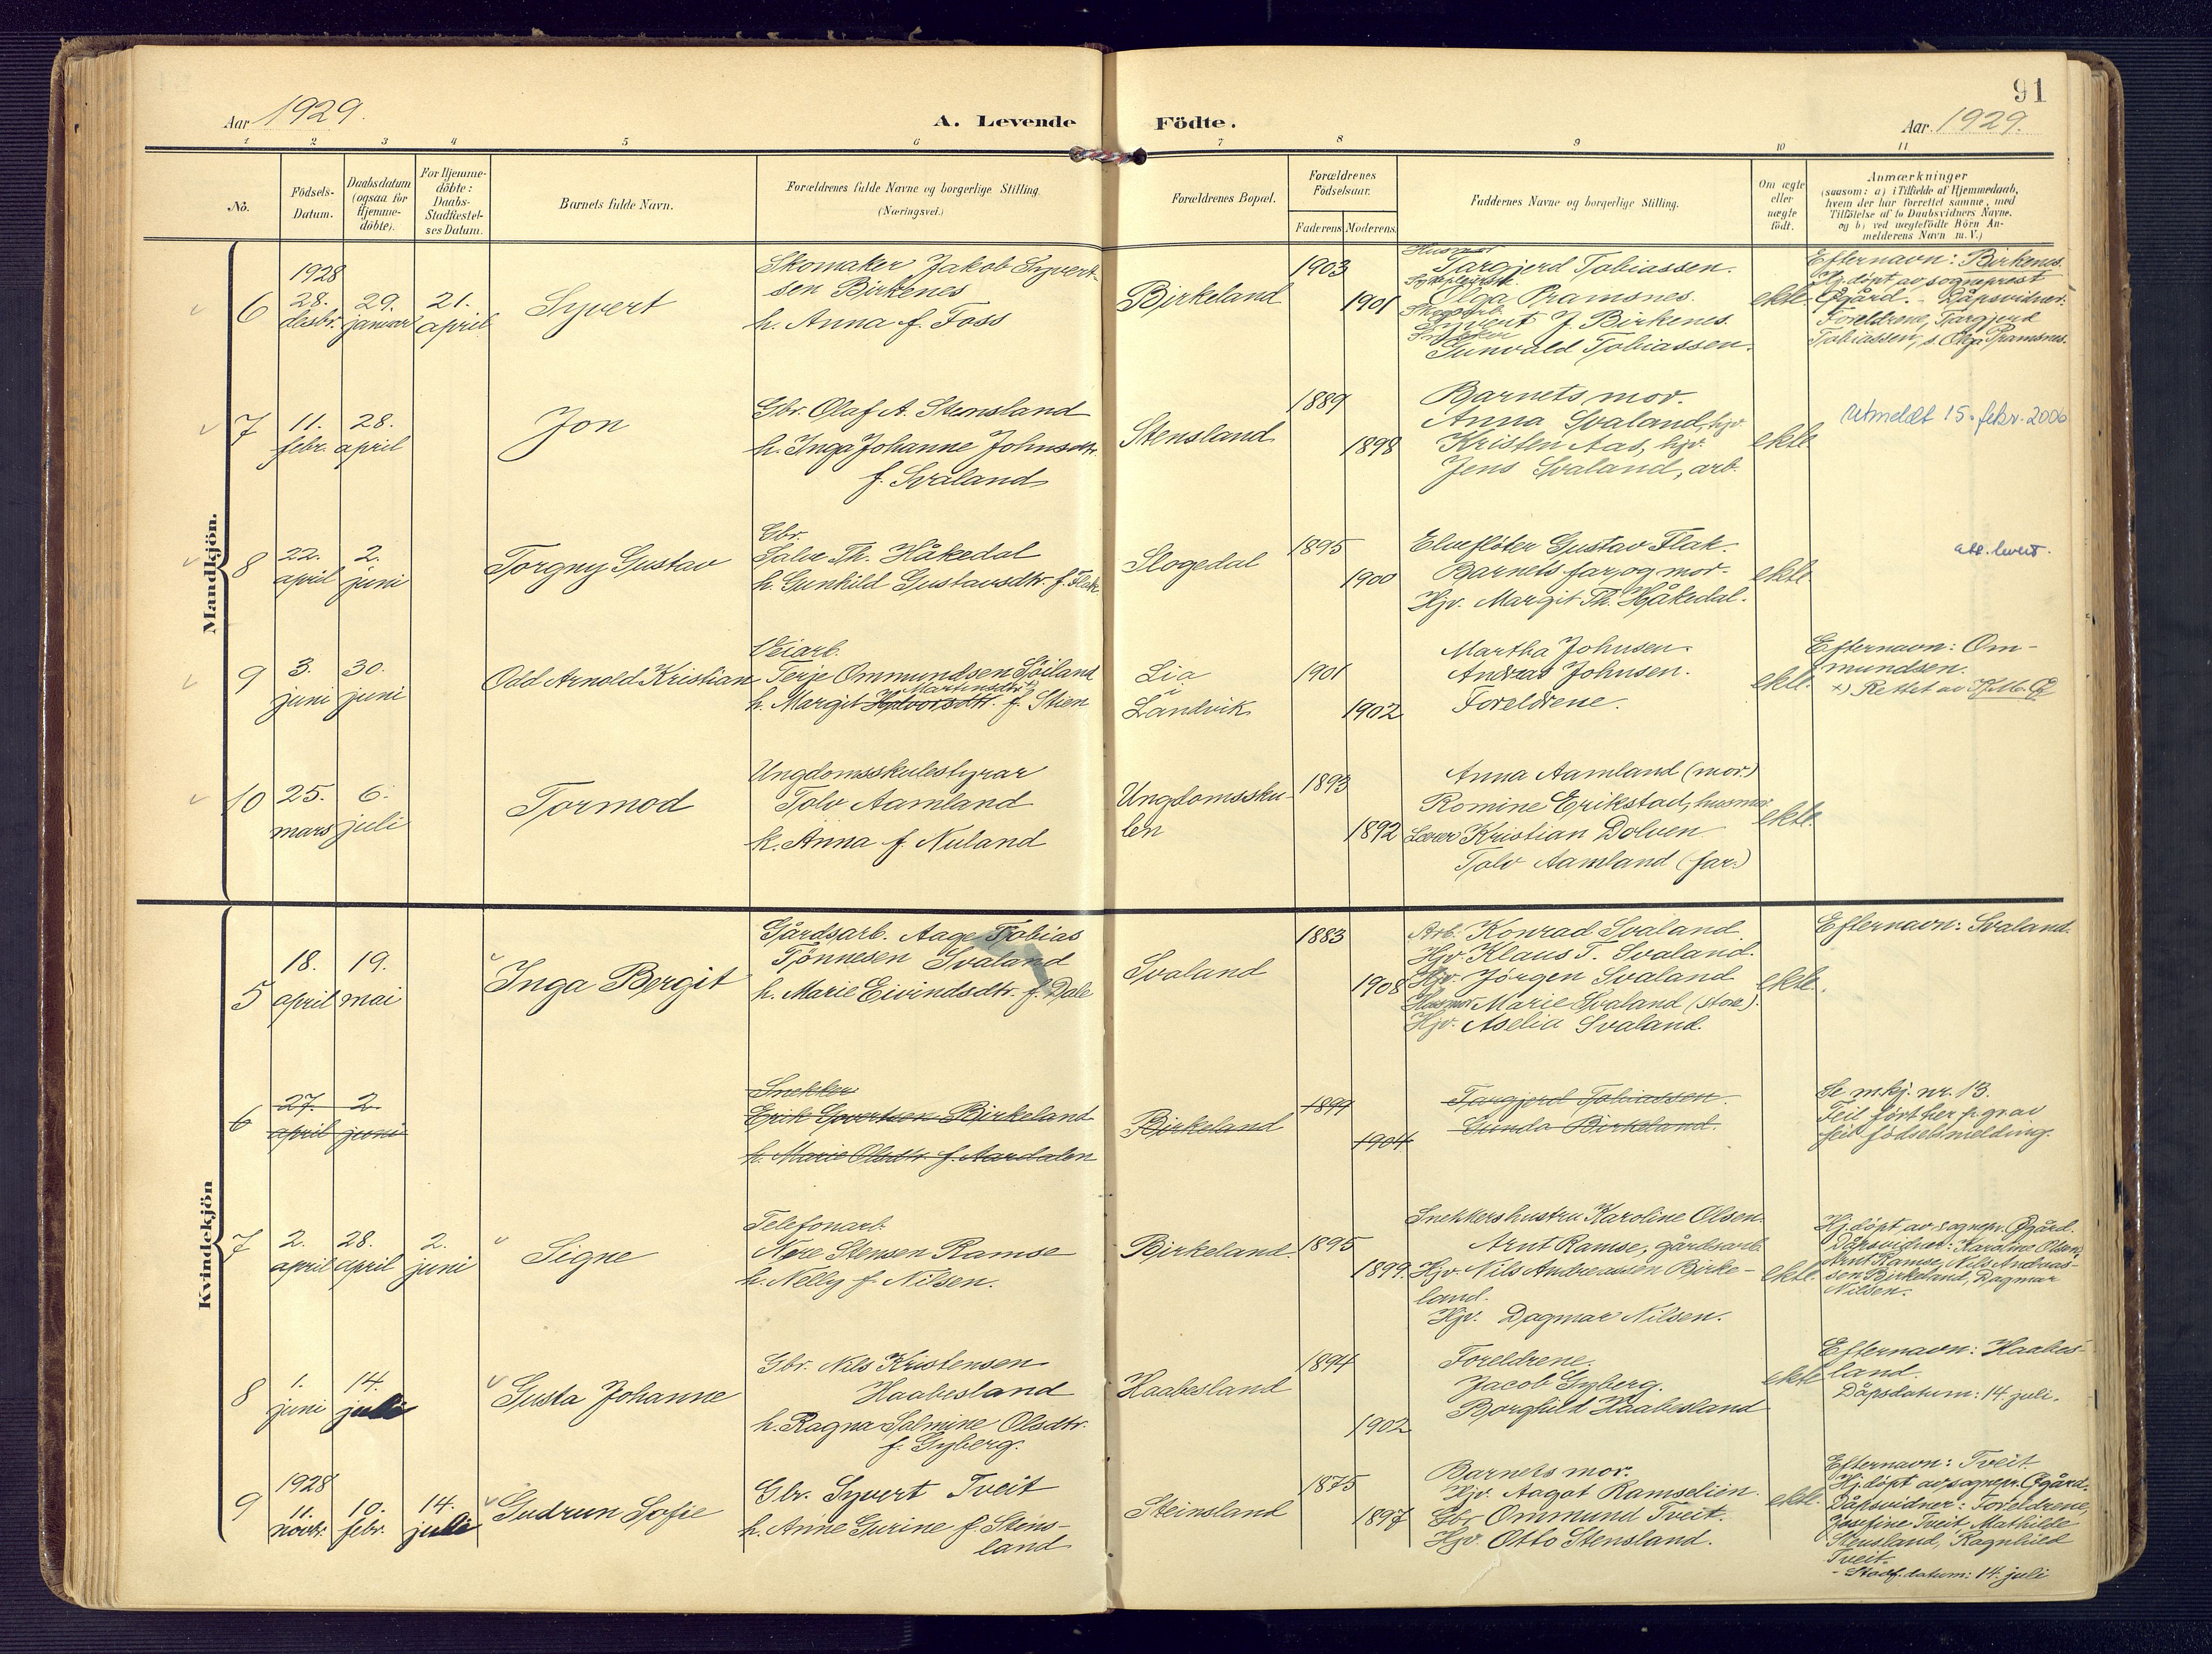 91
Aar 1929.
A. Levende Födte.
Aar 1929.
1 2 3 4 5 6 7 8 9 10 11
No.
Födsels-
Datum.
Daabsdatum
(ogsaa for
Hjemme-
döbte).
For Hjemme-
döbte:
Daabs-
Stadfæstel-
ses Datum.
Barnets fulde Navn.
Forældrenes fulde Navne og borgerlige Stilling.
(Næringsvei.)
Forældrenes Bopæl.
Forældrenes
Födselsaar.
Faderens Moderens
Faddernes Navne og borgerlige Stilling.
Om ægte
eller
uægte
født.
Anmærkninger
(saasom: a) i Tilfælde af Hjemmedaab,
hvem der har forrettet samme, med
Tilföielse af to Daabsvidners Navne.
og b) ved uægtefödte Börn An-
melderens Navn m. V.)
Mandkjön.
6
1928
28.
desbr.
29.
januar
21.
april
Syvert
Skomaker Jakob Syvert-
sen Birkenes
h. Anna f. Foss
Birkeland
1903
1901
Husmor
Targjerd Tobiassen.
Olga Pramsnes.
Syvert J. Birkenes.
Gunvald Tobiassen.
ekte
Efternavn: Birkenes.
Hj.döpt av sogneprest
Øgård. - Dåpsvidner:
Foreldrene, Targjerd
Tobiassen, Olga Pramsnes.
7
11.
febr.
28.
april
Jon
Gbr. Olaf A. Stensland
h. Inga Johanne Johnsdtr.
f. Svaland
Stensland
1889
1898
Barnets mor.
Anna Svaland, hjv.
Kristen Aas, hjv.
Jens Svaland, arb.
ekte
Utmeldt 15. febr. 2006
8
22.
april
2.
juni
Torgny Gustav
Gbr.
Salve Th. Håkedal
h. Gunhild Gustavsdtr. f. Flak
Slogedal
1895
1900
Elvefløter Gustav Flak.
Barnets far, og mor.
Hjv. Margit Th. Håkedal.
ekte
att. levert.
9
3.
juni
30.
juni
Odd Arnold Kristian
Veiarb.
Terje Ommundsen Söiland
Martinsdtr. x)
h. Margit Halvorsdtr. f. Stien
Lia
Landvik
1901
1902
Martha Johnsen.
Andreas Johnsen.
Foreldrene.
ekte.
Efternavn: Om-
mundsen.
x) Rettet av
10
25.
mars
6.
juli
Tormod
Ungdomsskulestyrar
Tolv Aamland
k. Anna f. Nuland
Ungdomssku-
len
1893
1892
Anna Aamland (mor.)
Romine Erikstad, husmor
Lærer Kristian Dolven
Tolv Aamland (far.)
ekte.
Kvindekjön
5
18.
april
19.
mai
Inga Bergit
Gårdsarb. Aage Tobias
Tönnesen Svaland
h. Marie Eivindsdtr. f. Dale
Svaland
1883
1908
Arb. Konrad Svaland
Hjv. Klaus T. Svaland.
Hjv. Jörgen Svaland
Husmor Marie Svaland
Hjv. Aselia Svaland.
ekte.
Efternavn: Svaland.
6
27.
april
2.
juni
Snekker
Erik Syvertsen Birkeland
h. Marie Olsdtr. f. Aardalen
Birkeland
1899
1904
Targjerd Tobiassen.
Gunda Birkeland.
Se mkj. nr. 13.
Feil fört her p.gr.av
feil födselsmelding.
7
2.
april
28.
april
2.
juni
Signe
Telefonarb.
Nere Stensen Ramse
h. Nelly f. Nilsen.
Birkeland.
1895
1899.
Snekkershustru Karoline Olsen.
Arnt Ramse, gårdsarb.
Hjv. Nils Andreassen Birke-
land.
Hjv. Dagmar Nilsen.
ekte.
Hj.döpt av sognepr. Øgård.
Dåpsvidner: Karoline Olsen,
Arnt Ramse, Nils Andreas-
sen Birkeland, Dagmar
Nilsen.
8
1.
juni
14.
juli
Gusta Johanne
Gbr. Nils Kristensen
Haabesland
h. Ragna Salmine Olsdtr.
f. Gyberg.
Haabesland
1894
1902
Foreldrene.
Jacob Gyberg.
Borghild Haabesland
ekte
Efternavn: Haabes-
land.
Dåpsdatum: 14. juli.
9
1928
11.
novbr.
10.
febr.
14.
juli
Gudrun Sofie
Gbr. Syvert Tveit
h. Anne Gurine f. Stens-
land
Steinsland
1875
1897
Barnets mor.
Hjv. Aagot Ramselien.
Gbr Ommund Tveit.
Hjv. Otto Stensland.
ekte.
Efternavn: Tveit.
Hj.döpt av sognepr. Øgård.
Dåpsvidner: Foreldrene,
Josefine Tveit, Mathilde
Stensland, Ragnhild
Tveit.
- Stadf.datum: 14. juli